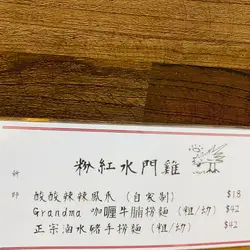 粉紅水門雞
酸酸辣辣鳳爪 (自家製) $18
Grandma 咖喱牛腩撈麵 (粗/幼) $42
正宗滷水豬手撈麵 (粗/幼) $42